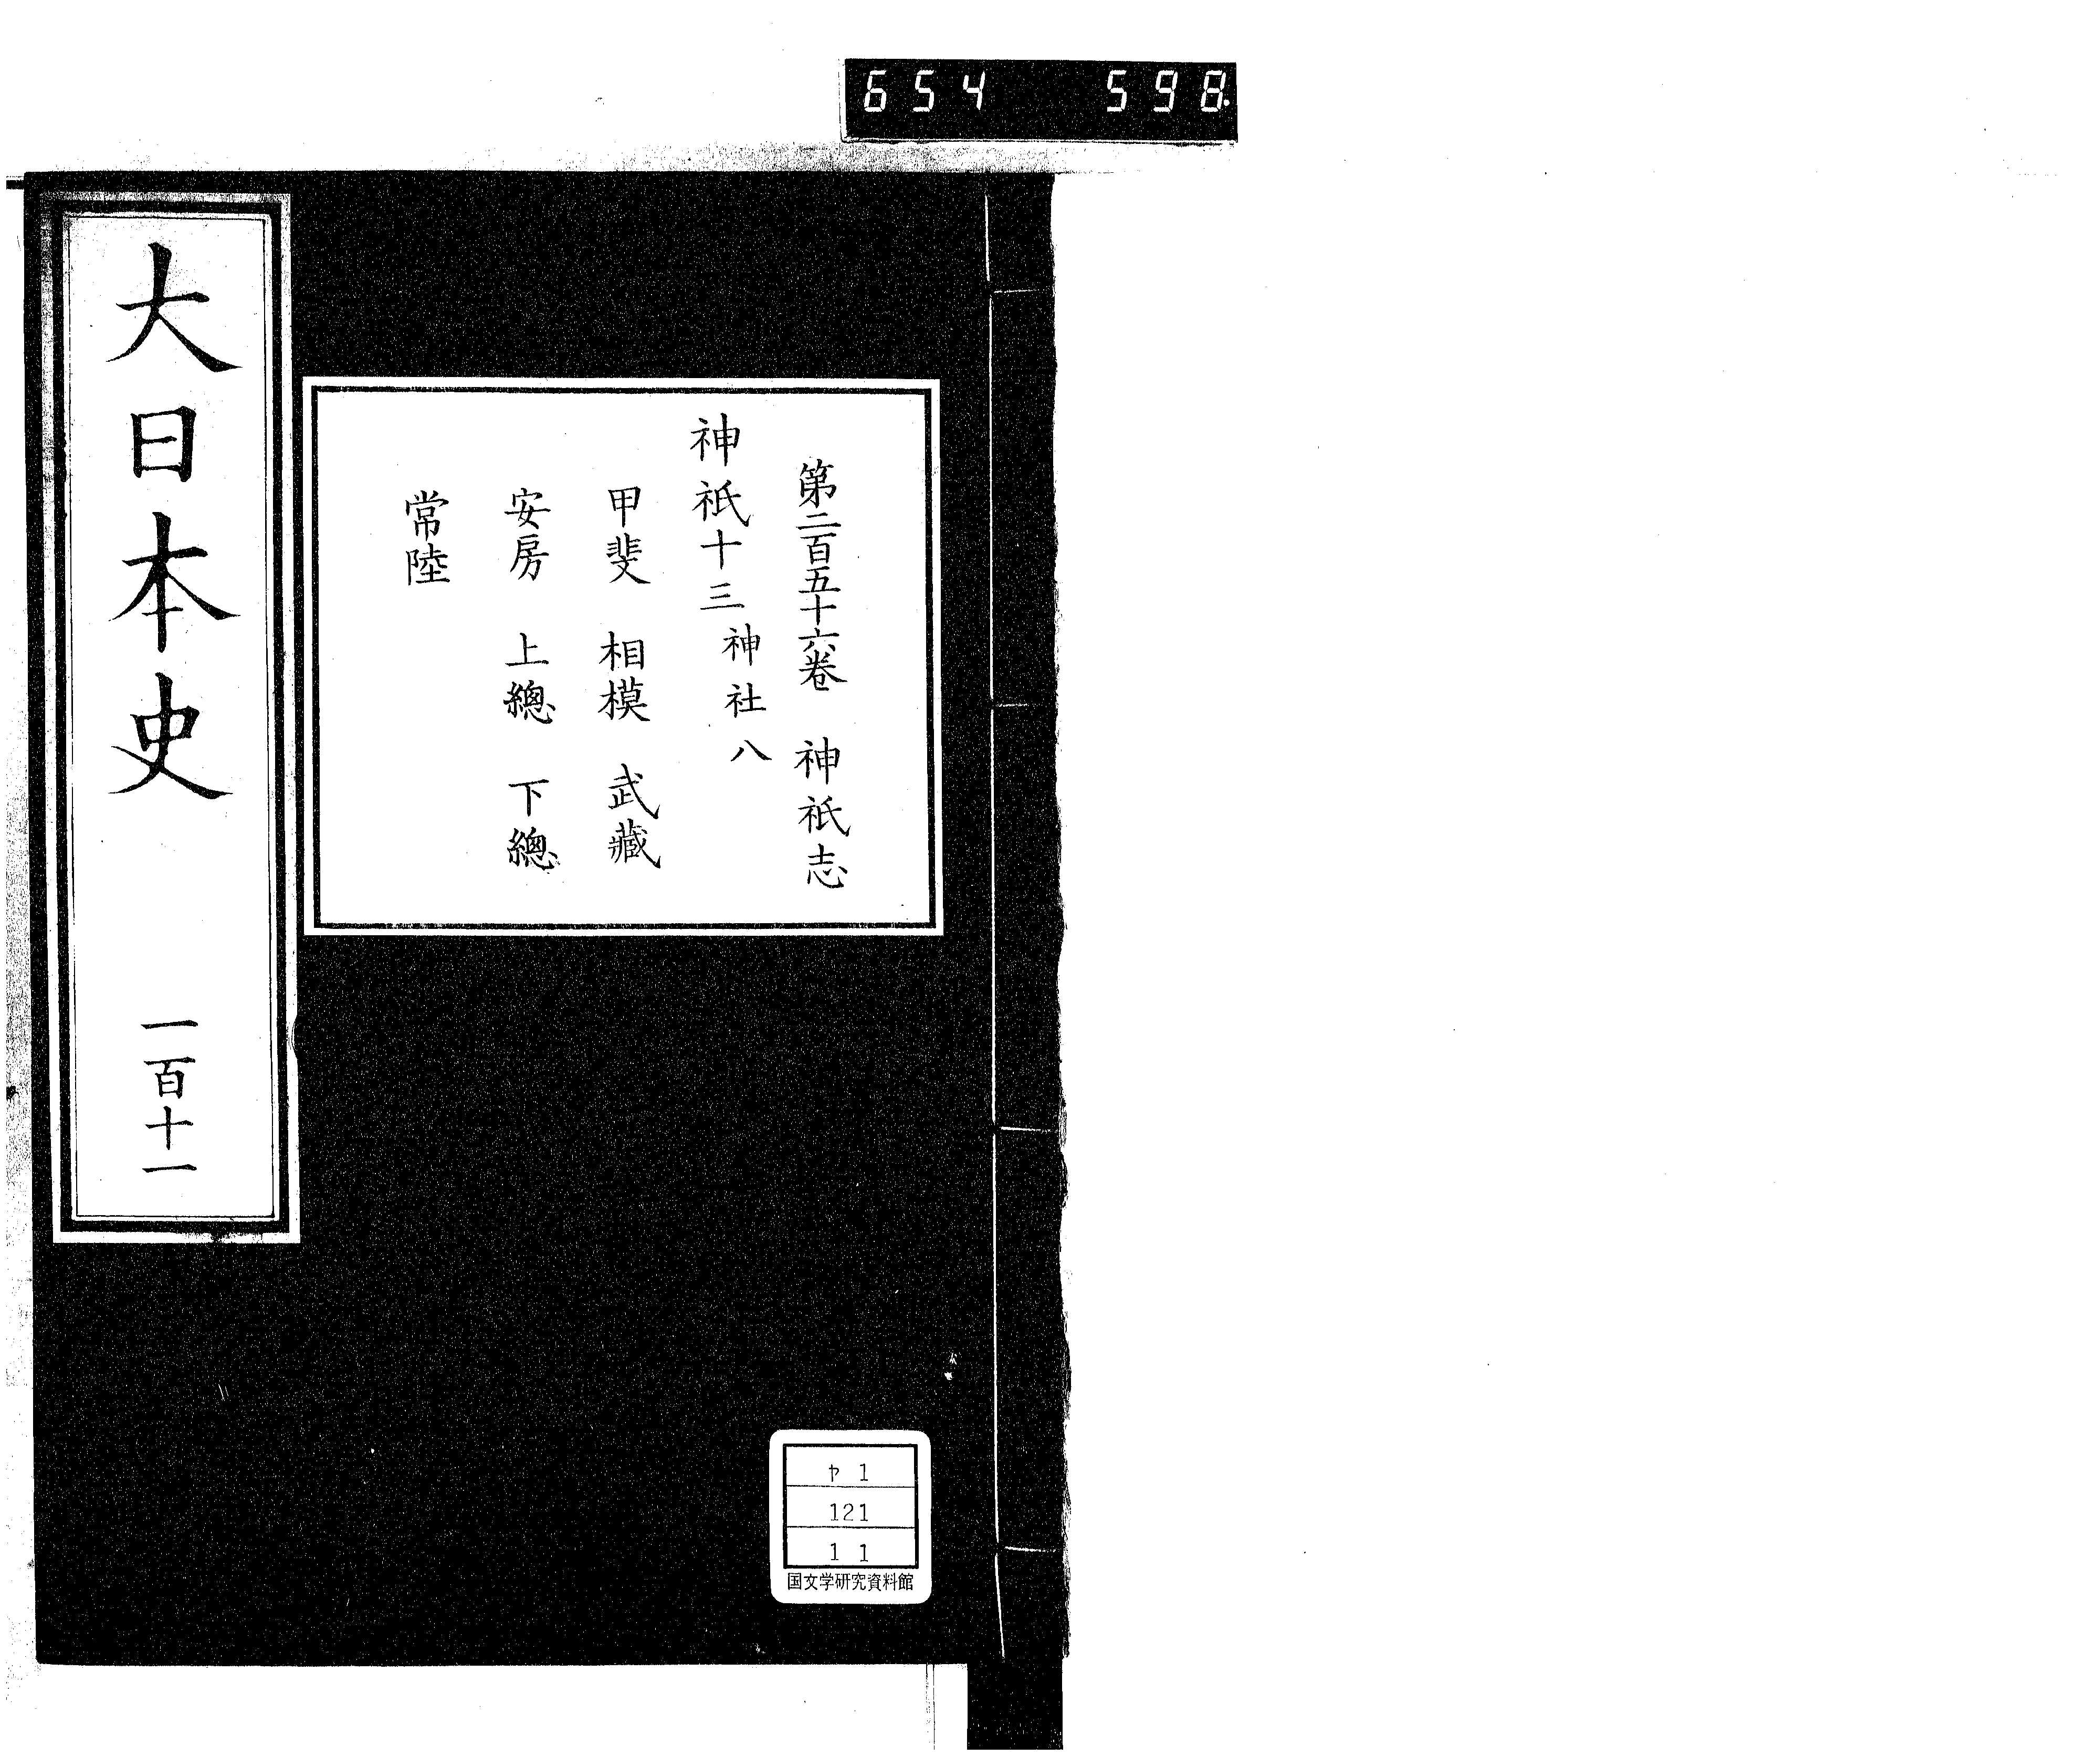 654 598.
大日本史 一百十一
第二百五十六卷 神祇志
神祇十三神社八
甲斐 相模 武藏
安房 上總 下總
常陸
ヤ 1
121
1 1
国文学研究資料館